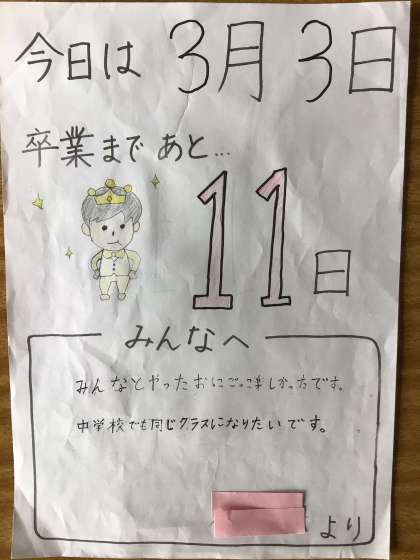 今日は 3月 3日
卒業まで あと...
11日
みんなへ
みんなとやったおにごっこ楽しかっ方です。
中学校でも同じクラスになりたいです。
より